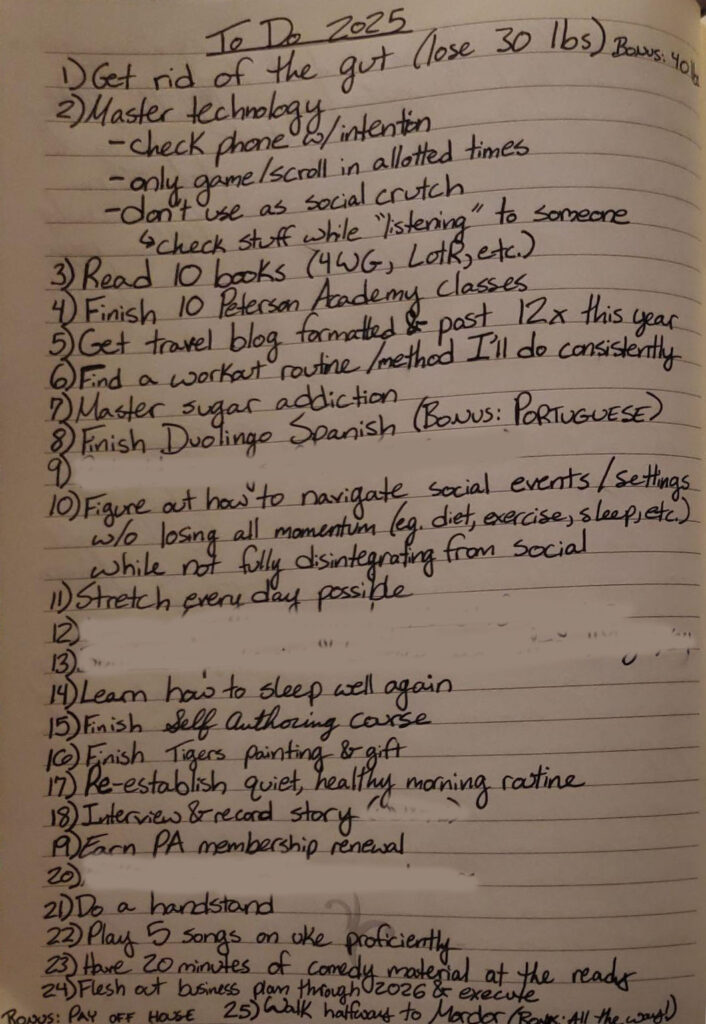 To Do 2025
1) Get rid of the gut (lose 30 lbs) Bonus: 40 lbs
2) Master technology
- check phone w/intention
- only game/scroll in allotted times
- don't use as social crutch
↳ check stuff while "listening" to someone
3) Read 10 books (4WG, LotR, etc.)
4) Finish 10 Peterson Academy classes
5) Get travel blog formatted & post 12x this year
6) Find a workout routine/method I'll do consistently
7) Master sugar addiction
8) Finish Duolingo Spanish (Bonus: PORTUGUESE)
9)
10) Figure out how to navigate social events/settings
w/o losing all momentum (eg. diet, exercise, sleep, etc.)
while not fully disintegrating from social
11) Stretch every day possible
12)
13)
14) Learn how to sleep well again
15) Finish Self Authoring course
16) Finish Tigers painting & gift
17) Re-establish quiet, healthy morning routine
18) Interview & record story
19) Earn PA membership renewal
20)
21) Do a handstand
22) Play 5 songs on uke proficiently
23) Have 20 minutes of comedy material at the ready
24) Flesh out business plan through 2026 & execute
Bonus: PAY OFF HOUSE 25) Walk halfway to Mordor (Bonus: All the way!)